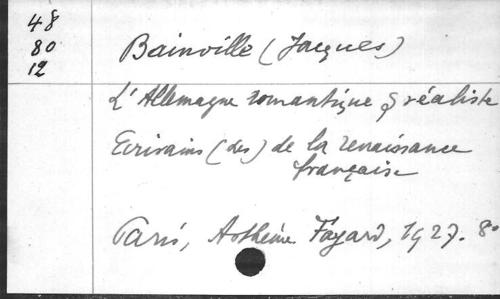 48
80
12
Bainville (Jacques)
L'Allemagne romantique & réaliste
Ecrivains (des) de la renaissance
française
Paris, Arthème Fayard, 1927. 8º